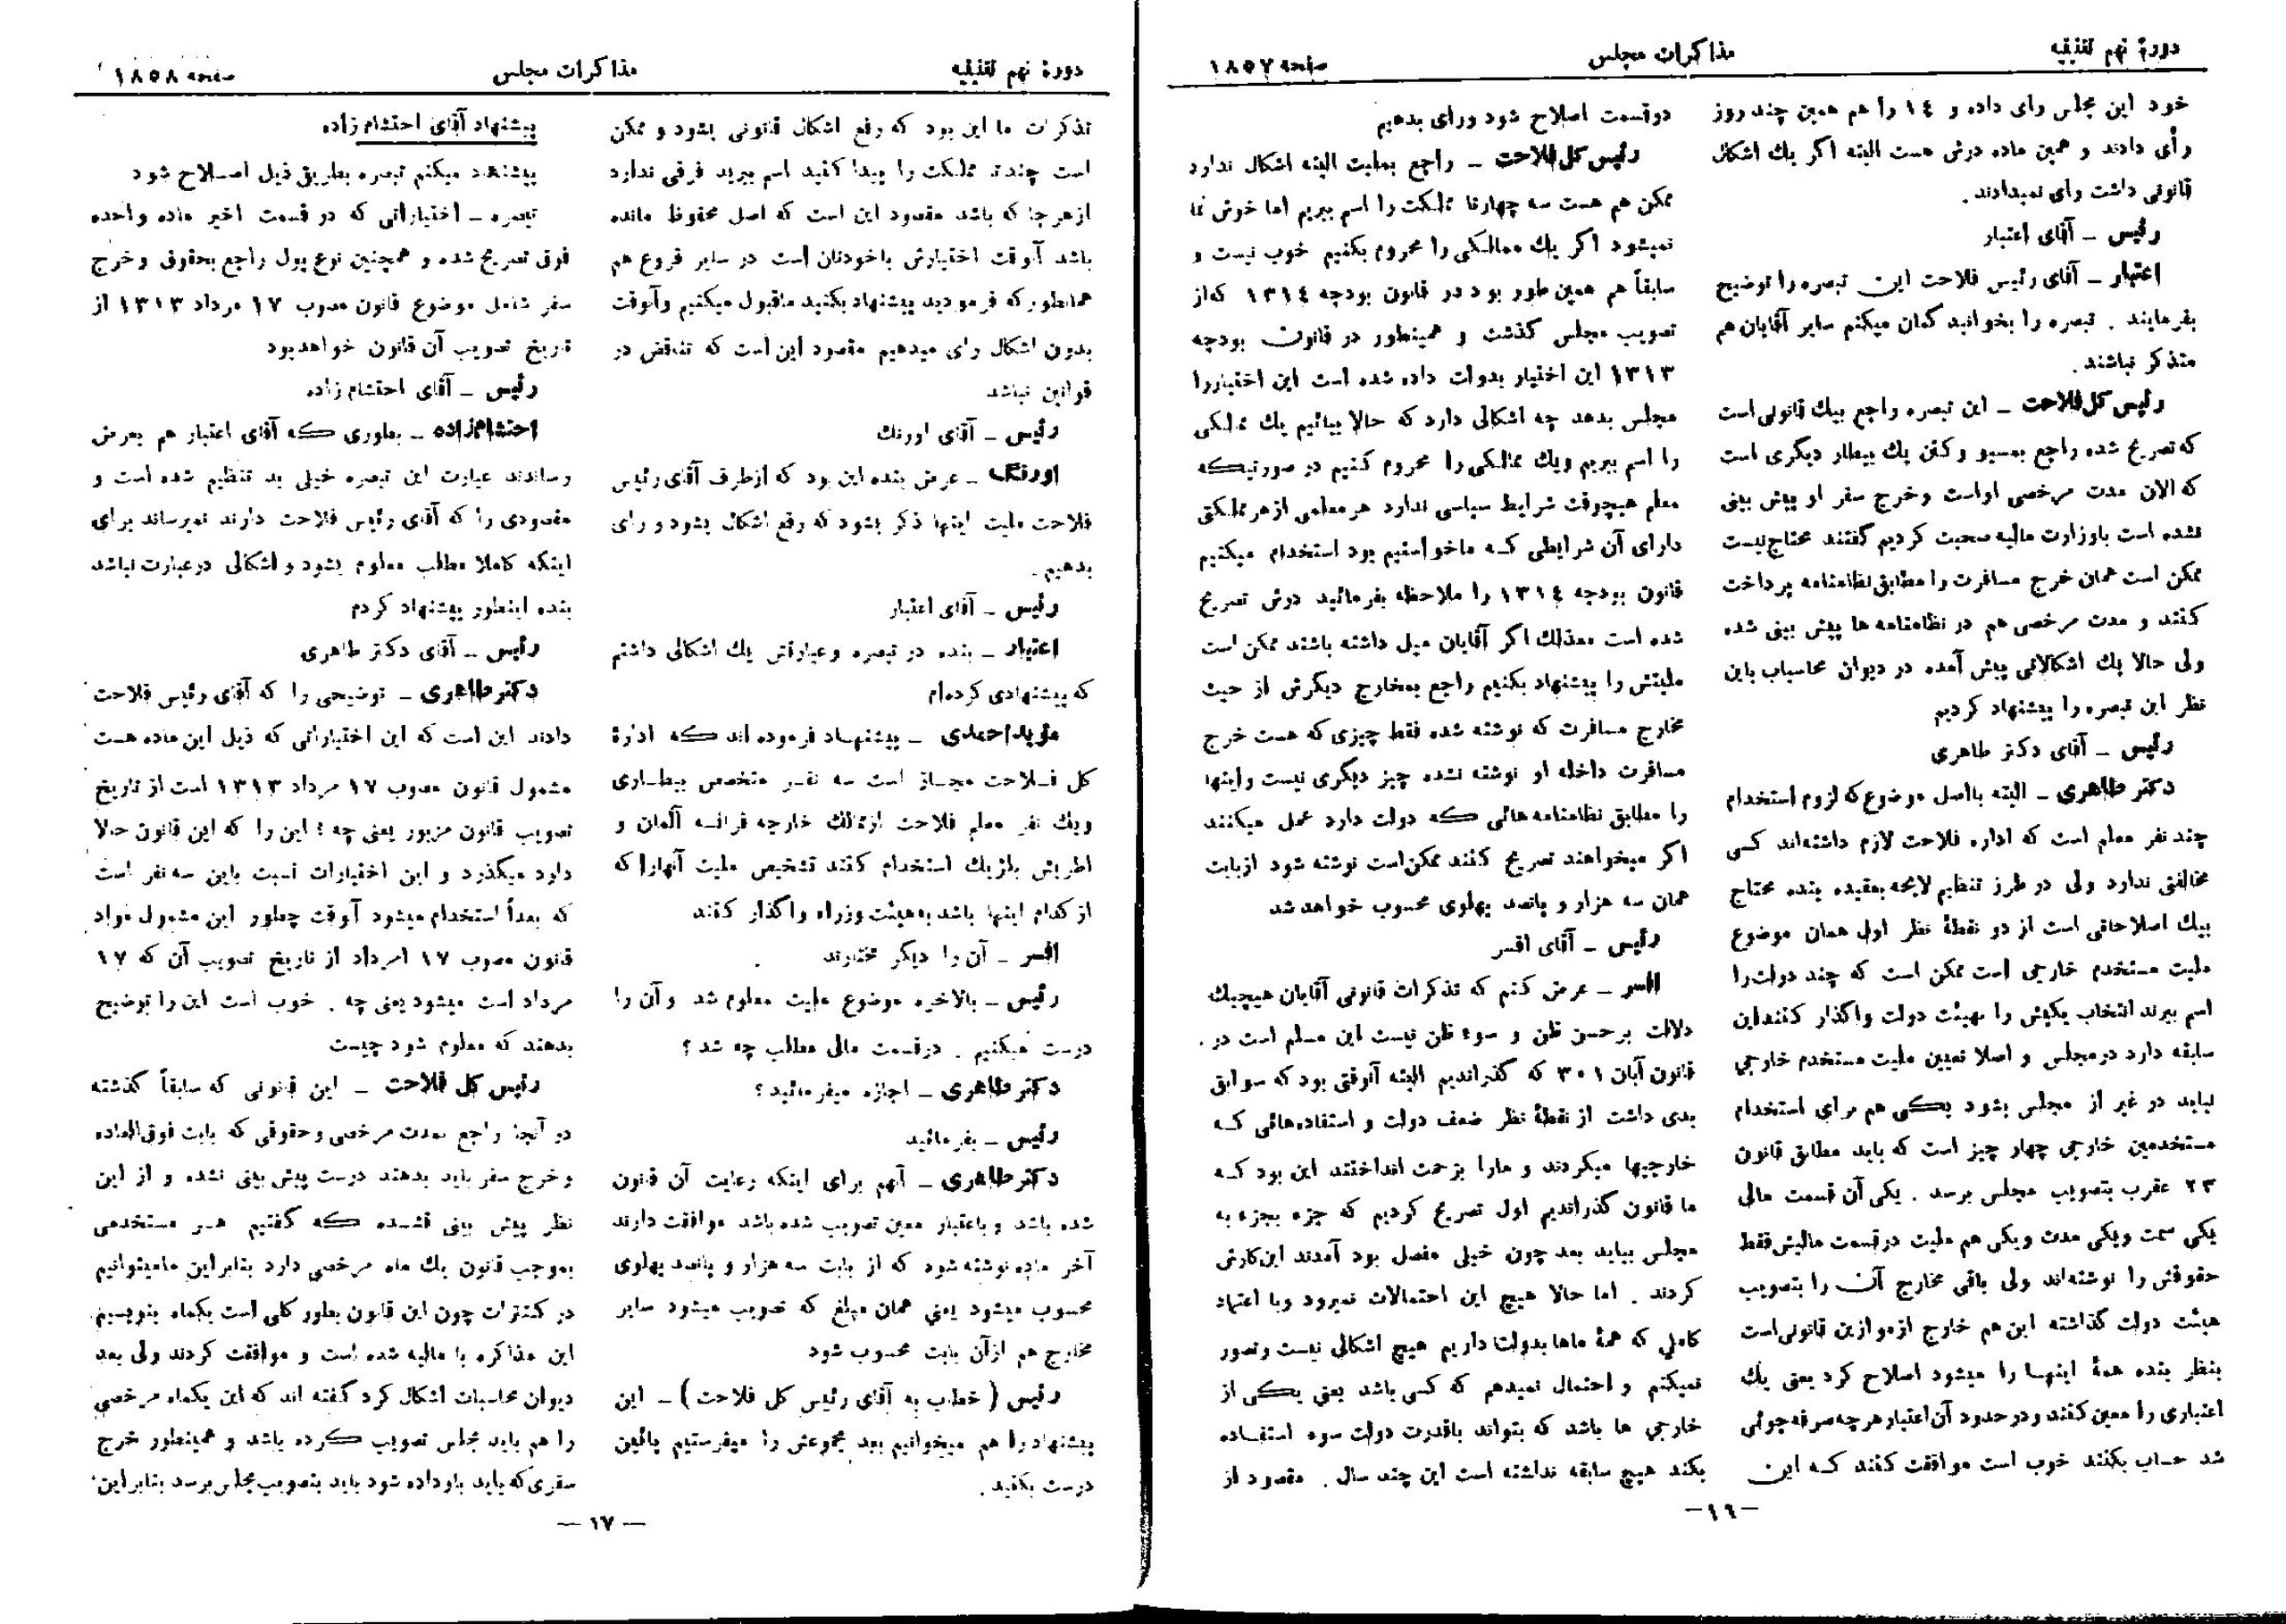 دورهٔ نهم تقنینیه
مذاکرات مجلس
صفحه ۱۸۵۷
خود این مجلس رای داده و ۱٤ را هم همین چند روز
رأی دادند و همین ماده درش هست البته اگر یك اشکال
قانونی داشت رای نمیدادند.
رئیس ـ آقای اعتبار
اعتبار ـ آقای رئیس فلاحت این تبصره را توضیح
بفرمایند . تبصره را بخوانید گمان میکنم سایر آقایان هم
متذکر نباشند.
رئیس کل فلاحت ـ این تبصره راجع بیك قانونی است
که تصریح شده راجع بمسیو و کتن یك بیطار دیگری است
که الان مدت مرخصی اواست وخرج سفر او پیش بینی
نشده است باوزارت مالیه صحبت کردیم گفتند محتاج نیست
ممکن است همان خرج مسافرت را مطابق نظامنامه پرداخت
کنند و مدت مرخصی هم در نظامنامه ها پیش بینی شده
ولی حالا یك اشکالاتی پیش آمده در دیوان محاسبات باین
نظر این تبصره را پیشنهاد کردیم
رئیس ـ آقای دکتر طاهری
دکتر طاهری ـ البته بااصل موضوع که لزوم استخدام
چند نفر معلم است که اداره فلاحت لازم داشته‌اند کسی
مخالفتی ندارد ولی در طرز تنظیم لایحه بعقیده بنده محتاج
بیك اصلاحاتی است از دو نقطهٔ نظر اول همان موضوع
ملیت مستخدم خارجی است ممکن است که چند دولت را
اسم ببرند انتخاب یکیش را بهیئت دولت واگذار کنند این
سابقه دارد در مجلس و اصلا تعیین ملیت مستخدم خارجی
نباید در غیر از مجلس بشود یکی هم برای استخدام
مستخدمین خارجی چهار چیز است که باید مطابق قانون
۲۳ عقرب بتصویب مجلس برسد . یکی آن قسمت مالی
یکی سمت ویکی مدت ویکی هم ملیت در قسمت مالیش فقط
حقوقش را نوشته‌اند ولی باقی مخارج آن را بتصویب
هیئت دولت گذاشته این هم خارج از موازین قانونی است
بنظر بنده همهٔ اینها را میشود اصلاح کرد یعنی یك
اعتباری را معین کنند و در حدود آن اعتبار هر چه صرفه جوئی
شد حساب بکنند خوب است موافقت کنند که این
دوقسمت اصلاح شود ورای بدهیم
رئیس کل فلاحت ـ راجع بملیت البته اشکال ندارد
ممکن هم هست سه چهارتا مملکت را اسم ببریم اما خوش نما
نمیشود اگر یك ممالکی را محروم بکنیم خوب نیست و
سابقاً هم همین طور بود در قانون بودجه ۱۳۱٤ که از
تصویب مجلس گذشت و همینطور در قانون بودجه
۱۳۱۳ این اختیار بدولت داده شده است این اختیار را
مجلس بدهد چه اشکالی دارد که حالا بیائیم یك مملکتی
را اسم ببریم ویك ممالکی را محروم کنیم در صورتیکه
معلم هیچوقت شرایط سیاسی ندارد هر معلمی از هر مملکتی
دارای آن شرایطی که ماخواستیم بود استخدام میکنیم
قانون بودجه ۱۳۱٤ را ملاحظه بفرمائید درش تصریح
شده است معذلك اگر آقایان میل داشته باشند ممکن است
ملیتش را پیشنهاد بکنیم راجع بمخارج دیگرش از حیث
مخارج مسافرت که نوشته شده فقط چیزی که هست خرج
مسافرت داخله او نوشته نشده چیز دیگری نیست واینها
را مطابق نظامنامه هائی که دولت دارد عمل میکنند
اگر میخواهند تصریح کنند ممکن است نوشته شود ازبابت
همان سه هزار و پانصد پهلوی محسوب خواهد شد
رئیس ـ آقای افسر
افسر ـ عرض کنم که تذکرات قانونی آقایان هیچیك
دلالت بر حسن ظن و سوء ظن نیست این مسلم است در
قانون آبان ۳۰۱ که گذراندیم البته آنوقتی بود که سوابق
بدی داشت از نقطهٔ نظر ضعف دولت و استفاده‌هائی که
خارجیها میکردند و مارا بزحمت انداختند این بود که
ما قانون گذراندیم اول تصریح کردیم که جزء بجزء به
مجلس بیاید بعد چون خیلی مفصل بود آمدند این کارش
کردند . اما حالا هیچ این احتمالات نمیرود وبا اعتماد
کاملی که همهٔ ماها بدولت داریم هیچ اشکالی نیست وتصور
نمیکنم و احتمال نمیدهم که کسی باشد یعنی یکی از
خارجی ها باشد که بتواند باقدرت دولت سوء استفاده
بکند هیچ سابقه نداشته است این چند سال . مقصود از
ـ۱٦ـ
دورهٔ نهم تقنینیه
مذاکرات مجلس
صفحه ۱۸۵۸
تذکرات ما این بود که رفع اشکال قانونی بشود و ممکن
است چندتا مملکت را پیدا کنید اسم ببرید فرقی ندارد
از هر جا که باشد مقصود این است که اصل محفوظ مانده
باشد آنوقت اختیارش باخودتان است در سایر فروع هم
همانطور که فرمودید پیشنهاد بکنید ماقبول میکنیم وآنوقت
بدون اشکال رای میدهیم مقصود این است که تناقض در
قوانین نباشد
رئیس ـ آقای اورنك
اورنگ ـ عرض بنده این بود که ازطرف آقای رئیس
فلاحت ملیت اینها ذکر بشود که رفع اشکال بشود و رای
بدهیم .
رئیس ـ آقای اعتبار
اعتبار ـ بنده در تبصره وعبارتش یك اشکالی داشتم
که پیشنهادی کرده‌ام
مؤید احمدی ـ پیشنهاد فرموده اند که ادارهٔ
کل فلاحت مجاز است سه نفر متخصص بیطاری
ویك نفر معلم فلاحت ازممالك خارجه فرانسه آلمان و
اطریش بلژیك استخدام کنند تشخیص ملیت آنها را که
از کدام اینها باشد به هیئت وزراء واگذار کنند
افسر ـ آن را دیگر مختارند .
رئیس ـ بالاخره موضوع ملیت معلوم شد وآن را
درست میکنیم . درقسمت مالی مطلب چه شد ؟
دکتر طاهری ـ اجازه میفرمائید ؟
رئیس ـ بفرمائید
دکتر طاهری ـ آنهم برای اینکه رعایت آن قانون
شده باشد و با عتبار معین تصویب شده باشد موافقت دارند
آخر ماده نوشته شود که از بابت سه هزار و پانصد پهلوی
محسوب میشود یعنی همان مبلغ که تصویب میشود سایر
مخارج هم ازآن بابت محسوب شود
رئیس ( خطاب به آقای رئیس کل فلاحت ) ـ این
پیشنهاد را هم میخوانیم بعد مجموعش را میفرستیم پائین
درست بکنید .
پیشنهاد آقای احتشام زاده
پیشنهاد میکنم تبصره بطریق ذیل اصلاح شود
تبصره ـ اختیاراتی که در قسمت اخیر ماده واحده
فوق تصریح شده و همچنین نوع پول راجع بحقوق وخرج
سفر شامل موضوع قانون مصوب ۱۷ مرداد ۱۳۱۳ از
تاریخ تصویب آن قانون خواهدبود
رئیس ـ آقای احتشام زاده
احتشام‌زاده ـ بطوری که آقای اعتبار هم بعرض
رساندند عبارت این تبصره خیلی بد تنظیم شده است و
مقصودی را که آقای رئیس فلاحت دارند نمیرساند برای
اینکه کاملا مطلب معلوم بشود و اشکالی درعبارت نباشد
بنده اینطور پیشنهاد کردم
رئیس ـ آقای دکتر طاهری
دکتر طاهری ـ توضیحی را که آقای رئیس فلاحت
دادند این است که این اختیاراتی که ذیل این ماده هست
مشمول قانون مصوب ۱۷ مرداد ۱۳۱۳ است از تاریخ
تصویب قانون مزبور یعنی چه ؟ این را که این قانون حالا
دارد میگذرد و این اختیارات نسبت باین سه نفر است
که بعداً استخدام میشود آنوقت چطور این مشمول مواد
قانون مصوب ۱۷ امرداد از تاریخ تصویب آن که ۱۷
مرداد است میشود یعنی چه . خوب است این را توضیح
بدهند که معلوم شود چیست
رئیس کل فلاحت ـ این قانونی که سابقاً گذشته
در آنجا راجع بمدت مرخصی و حقوقی که بابت فوق‌العاده
و خرج سفر باید بدهند درست پیش بینی نشده و از این
نظر پیش بینی نشده که گفتیم هر مستخدمی
بموجب قانون یك ماه مرخصی دارد بنابراین مامیتوانیم
در کنترات چون این قانون بطور کلی است یکماه بنویسیم
این مذاکره با مالیه شده است و موافقت کردند ولی بعد
دیوان محاسبات اشکال کرد گفته اند که این یکماه مرخصی
را هم باید مجلس تصویب کرده باشد و همینطور خرج
سفری که باید باو داده شود باید بتصویب مجلس برسد بنابراین
ـ ۱۷ ـ